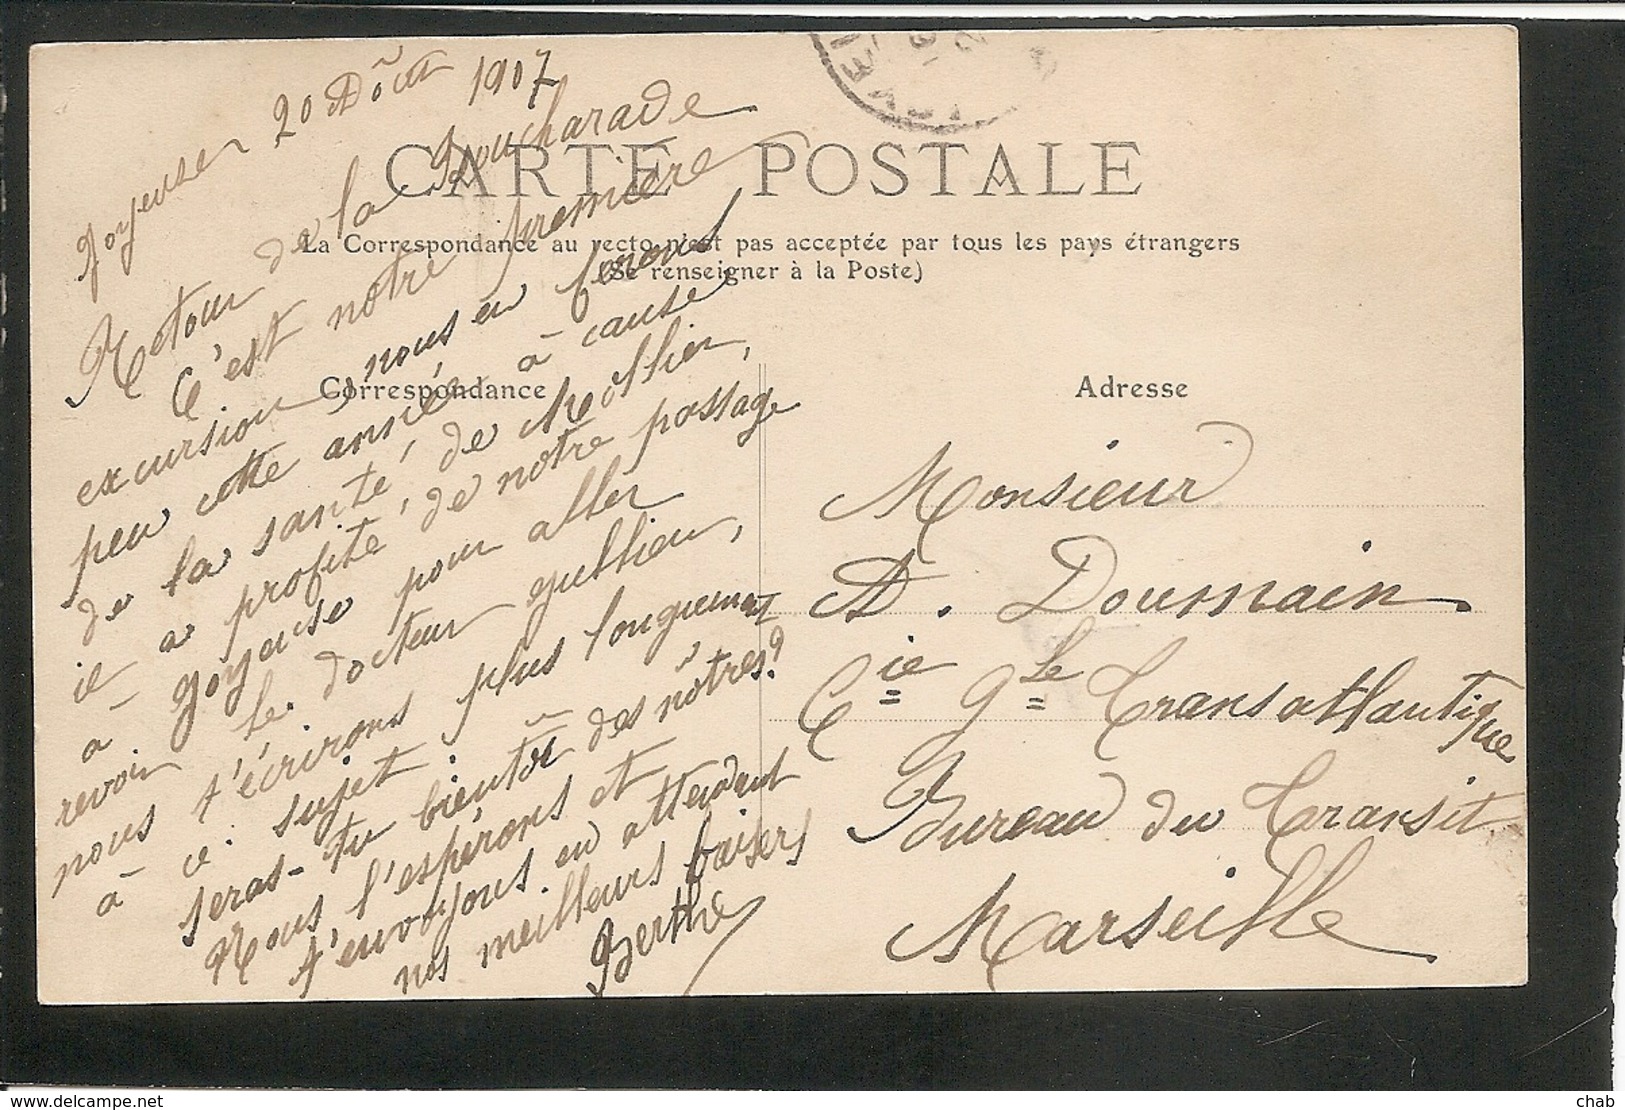 Joyeuse 20 Août 1907
CARTE POSTALE
La Correspondance au recto n'est pas acceptée par tous les pays étrangers
(Se renseigner à la Poste)
Correspondance
Retour de la Boucharade
C'est notre première
excursion, nous en ferons
peu cette année à cause
de la santé, de
il a profité, de notre passage
à Joyeuse pour aller
revoir le docteur
nous t'écrirons plus longuement
à ce sujet.
seras-tu bientôt des nôtres?
Nous l'espérons et
t'envoyons en attendant
nos meilleurs baisers
Berthe
Adresse
Monsieur
A. Doumain
Cie gle Transatlantique
Bureau du Transit
Marseille
delcampe.net
chab